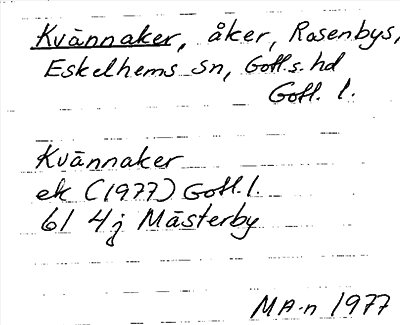 Kvännaker, åker, Rosenbys,
Eskelhems sn, Gotl.s. hd
Gotl. l.
Kvännaker
ek (1977) Gotl. l.
6I 4j Mästerby
MA-n 1977